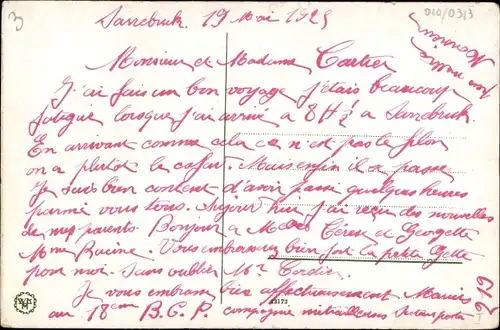 3
Sarrebruk. 19 Mai 1925
D10/0313
Monsieur et Madame Cartier
J'ai fais un bon voyage j'étais beaucoup
fatigué lorsque j'ai arrivé a 8 H ½ a Sarrebruk.
En arrivant comme cela ce n'est pas le filon
on a plutot le cafart. Mais enfin il a passé
Je suis bien content d'avoir passé quelques heures
parmé vous tous. Aujour hui j'ai reçu des nouvelles
de mes parents. Bonjour a Mades et Georgette
Mme Racine Vous embrasserez bien fort la petite Gette
pour moi. sans oublier Mr Cordier.
Je vous embrasse bien affectueusement Mauris
au 18em B.C.P. compagnie mitrailleuses Secteur postal